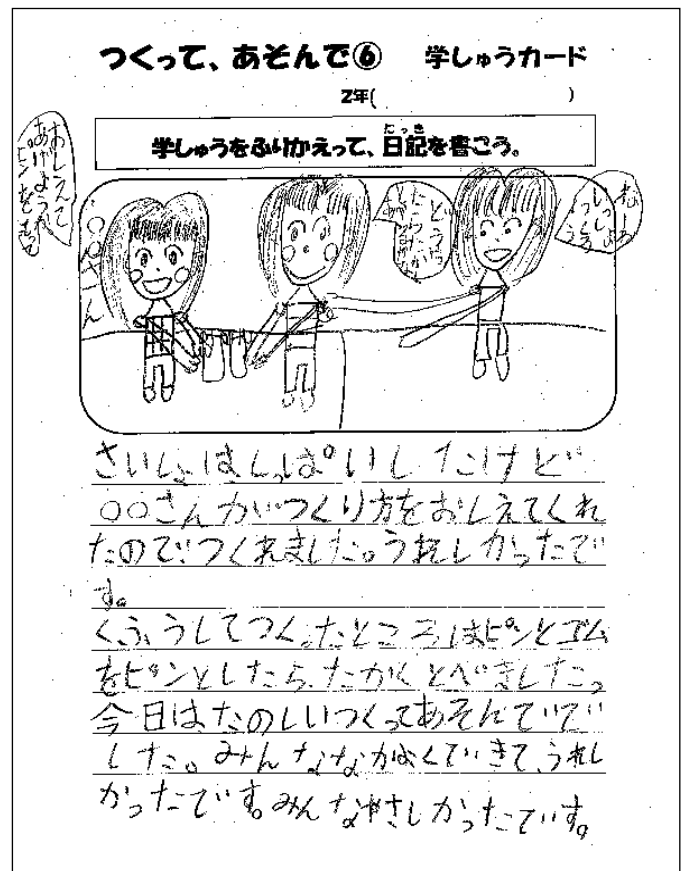 つくって、あそんで⑥ 学しゅうカード
2年( )
にっき
学しゅうをふりかえって、日記を書こう。
おしえて
あげよう
ピンをも
○○さん
さいしょはしっぱいしたけど
○○さんがつくり方をおしえてくれ
たのでつくれました。うれしかったで
す。
くふうしてつくったところはピンとゴム
をピンとしたら、たかくとべました。
今日は、たのしいつくってあそんでで
した。みんななかよくできて、うれし
かったです。みんなやさしかったです。